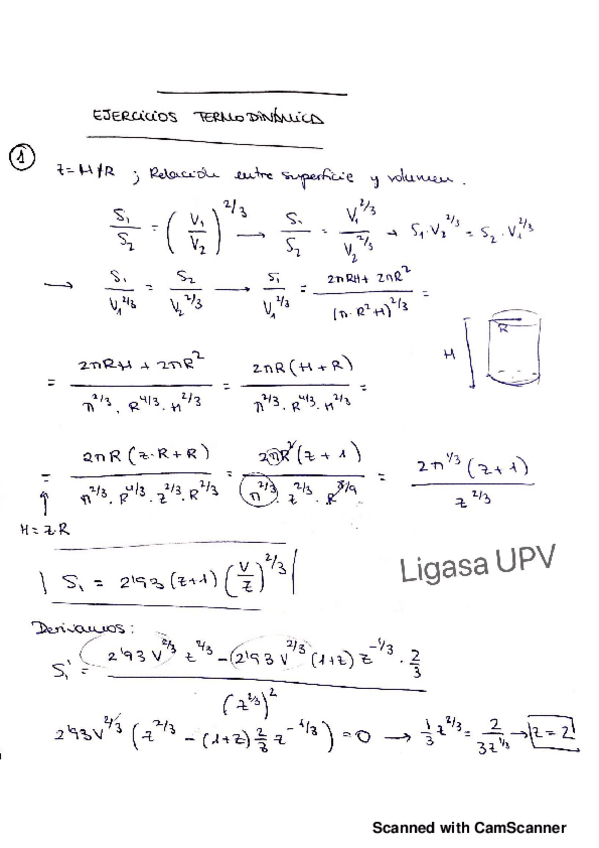 EJERCICIOS TERMODINÁMICA
① z = H/R ; Relación entre superficie y volumen.
S₁/S₂ = (V₁/V₂)^2/3 → S₁/S₂ = V₁^2/3 / V₂^2/3 → S₁·V₂^2/3 = S₂·V₁^2/3
→ S₁/V₁^2/3 = S₂/V₂^2/3 → S₁/V₁^2/3 = (2πRH + 2πR²)/(π·R²·H)^2/3 =
H R
= (2πRH + 2πR²)/(π^2/3 · R^4/3 · H^2/3) = 2πR(H + R)/(π^2/3 · R^4/3 · H^2/3) =
= 2πR(z·R + R)/(π^2/3 · R^4/3 · z^2/3 · R^2/3) = 2πR²(z + 1)/(π^2/3 · z^2/3 · R) = 2π^1/3 (z + 1)/z^2/3
↑
H = z·R
S₁ = 2'93 (z+1) (V/z)^2/3
Ligasa UPV
Derivamos:
S₁' = (2'93 V^2/3 z^2/3 - (2'93 V^2/3 (1+z) z^-1/3 · 2/3)/(z^2/3)²
2'93 V^2/3 (z^2/3 - (1+z) 2/3 z^-1/3) = 0 → 1/3 z^2/3 = 2/3z^1/3 → z = 2
Scanned with CamScanner